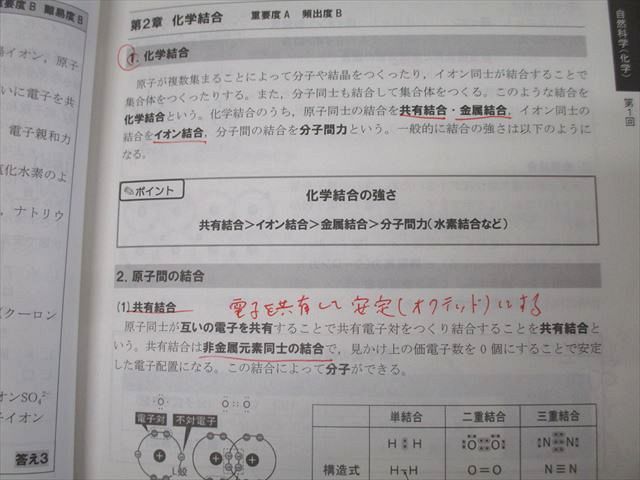 要度B 難易度B
イオン，原子
いに電子を共
電子親和力
化水素のよ
，ナトリウ
（クーロン
オンSO₄²⁻
イオン
答え3
第2章 化学結合 重要度A 頻出度B
1. 化学結合
原子が複数集まることによって分子や結晶をつくったり，イオン同士が結合することで
集合体をつくったりする。また，分子同士も結合して集合体をつくる。このような結合を
化学結合という。化学結合のうち，原子同士の結合を共有結合・金属結合，イオン同士の
結合をイオン結合，分子間の結合を分子間力という。一般的に結合の強さは以下のように
なる。
ポイント
化学結合の強さ
共有結合＞イオン結合＞金属結合＞分子間力（水素結合など）
2. 原子間の結合
(1) 共有結合 電子を共有して安定(オクテット)にする
原子同士が互いの電子を共有することで共有電子対をつくり結合することを共有結合と
いう。共有結合は非金属元素同士の結合で，見かけ上の価電子数を0個にすることで安定
した電子配置になる。この結合によって分子ができる。
電子対 不対電子
L殻
単結合 二重結合 三重結合
構造式
H:H
O=O
N≡N
自然科学（化学） 第1回